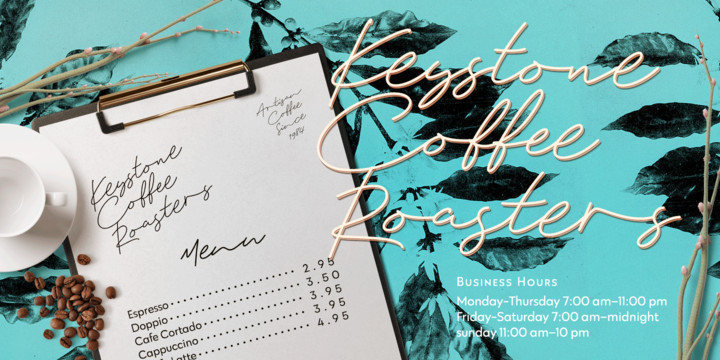 Artisan
Coffee
Since
1984
Keystone
Coffee
Roasters
Menu
Espresso 2.95
Doppio 3.50
Cafe Cortado 3.95
Cappuccino 3.95
Latte 4.95
Keystone
Coffee
Roasters
Business Hours
Monday-Thursday 7:00 am–11:00 pm
Friday-Saturday 7:00 am–midnight
sunday 11:00 am–10 pm